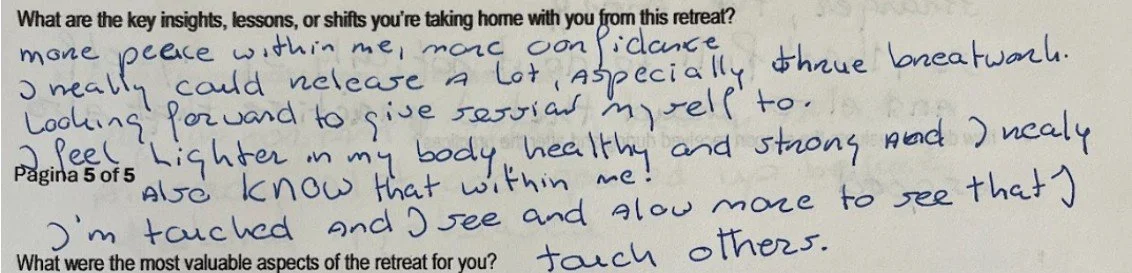 What are the key insights, lessons, or shifts you're taking home with you from this retreat?
more peace within me, more confidance
I really could release A Lot, Aspecially thrue breatwork.
Looking forward to give session myself to.
I feel lighter in my body, healthy and strong And I realy
Pagina 5 of 5
Also know that within me!
I'm touched and I see and Alow more to see that I
What were the most valuable aspects of the retreat for you?
touch others.